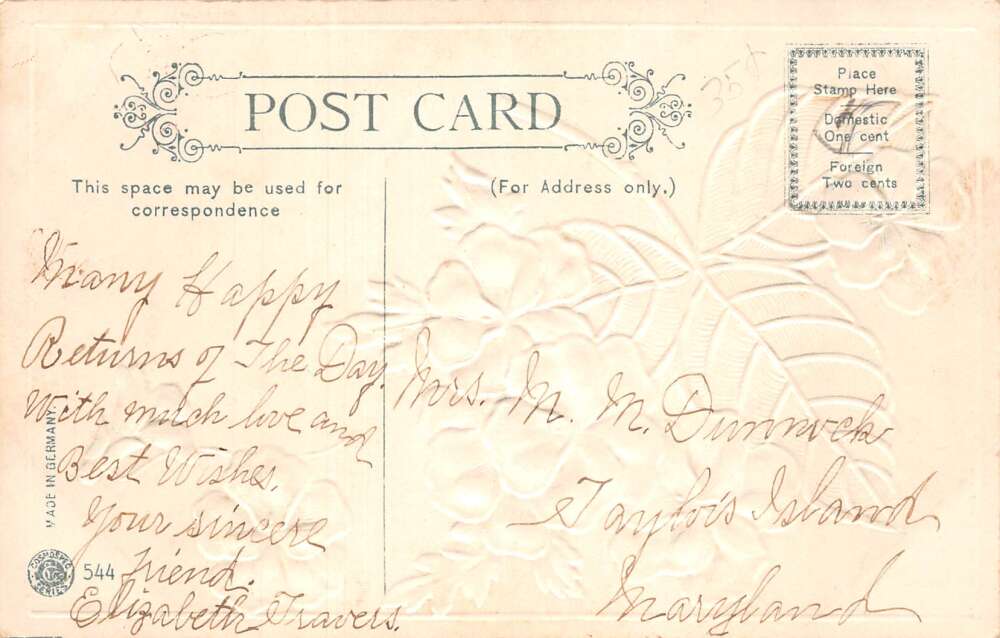 35x
POST CARD
Place
Stamp Here
Domestic
One cent
Foreign
Two cents
This space may be used for
correspondence
(For Address only.)
Many Happy
Returns of The Day.
With much love and
Best Wishes.
Your sincere
friend.
Elizabeth Travers.
Mrs. M. M. Dunnock
Taylor's Island
Maryland
MADE IN GERMANY.
COSMOSPEC
SERIES
544